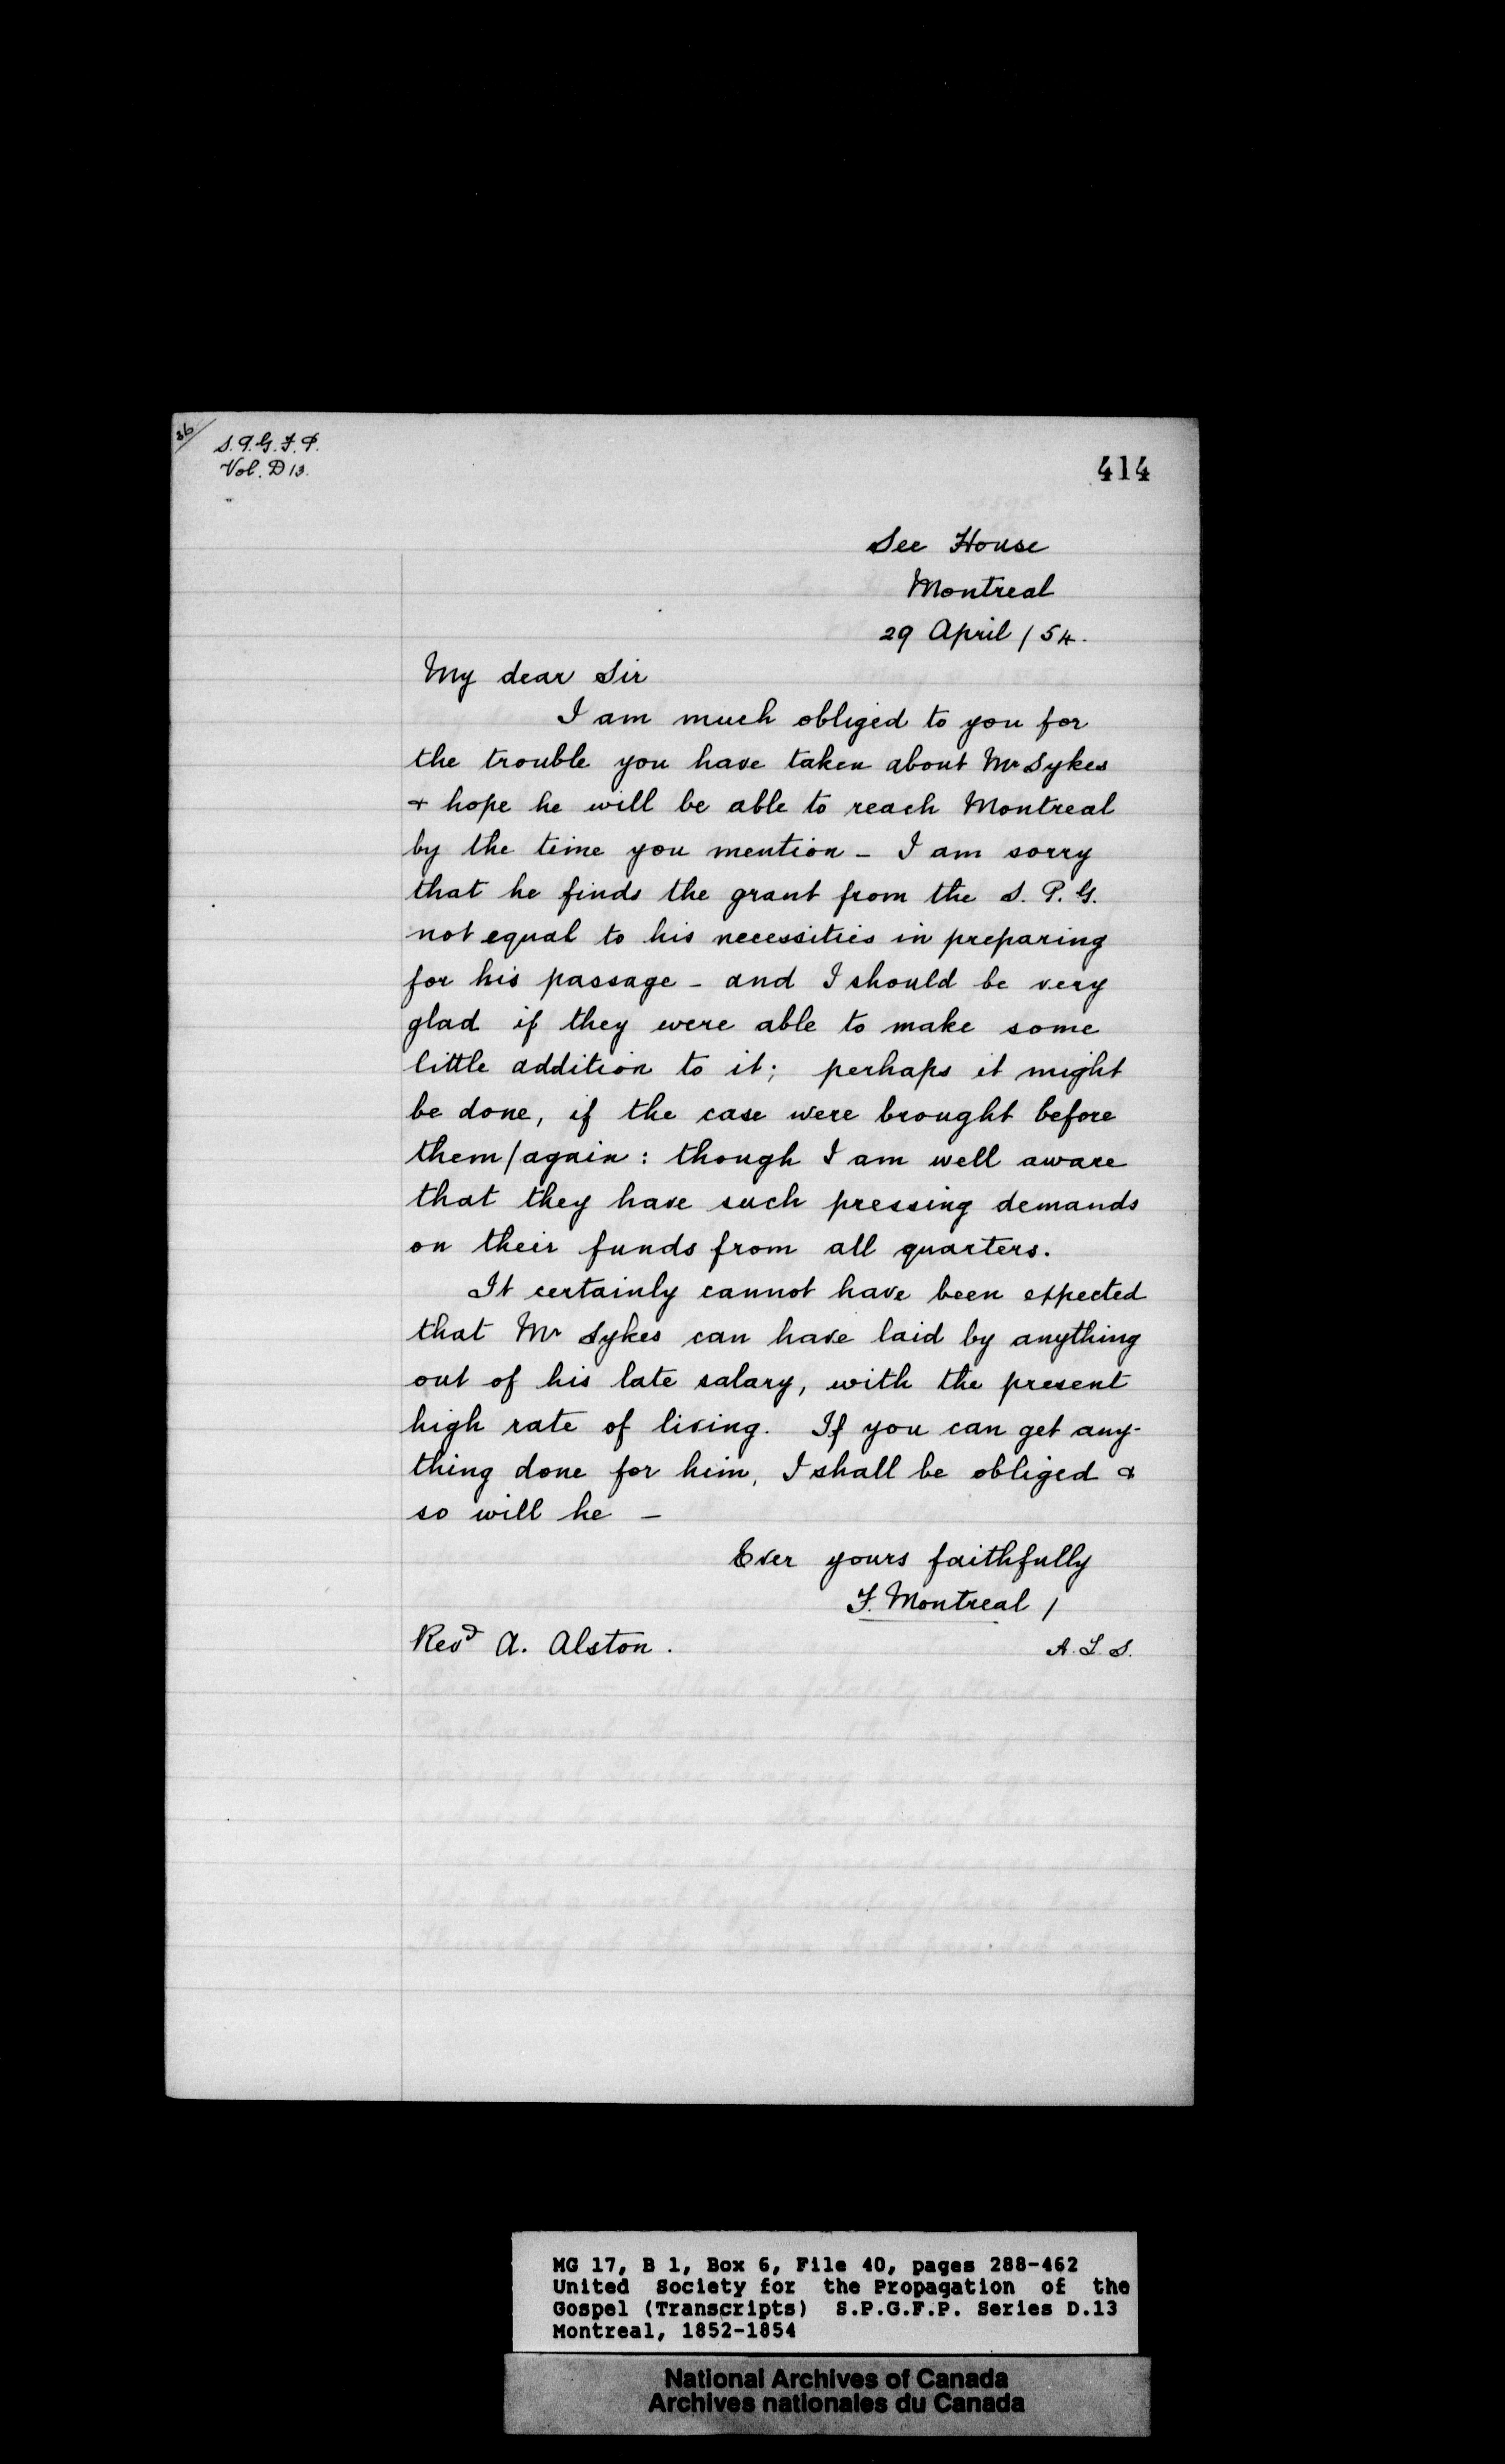 36/
S.P.G.F.P.
Vol. D 13.
"
414
See House
Montreal
29 April / 54.
My dear Sir
I am much obliged to you for
the trouble you have taken about Mr Sykes
& hope he will be able to reach Montreal
by the time you mention – I am sorry
that he finds the grant from the S. P. G.
not equal to his necessities in preparing
for his passage – and I should be very
glad if they were able to make some
little addition to it; perhaps it might
be done, if the case were brought before
them/again: though I am well aware
that they have such pressing demands
on their funds from all quarters.
It certainly cannot have been expected
that Mr Sykes can have laid by anything
out of his late salary, with the present
high rate of living. If you can get any-
thing done for him, I shall be obliged &
so will he –
Ever yours faithfully
F. Montreal /
Revd A. Alston.
A. L. S.
MG 17, B 1, Box 6, File 40, pages 288-462
United Society for the Propagation of the
Gospel (Transcripts) S.P.G.F.P. Series D.13
Montreal, 1852-1854
National Archives of Canada
Archives nationales du Canada